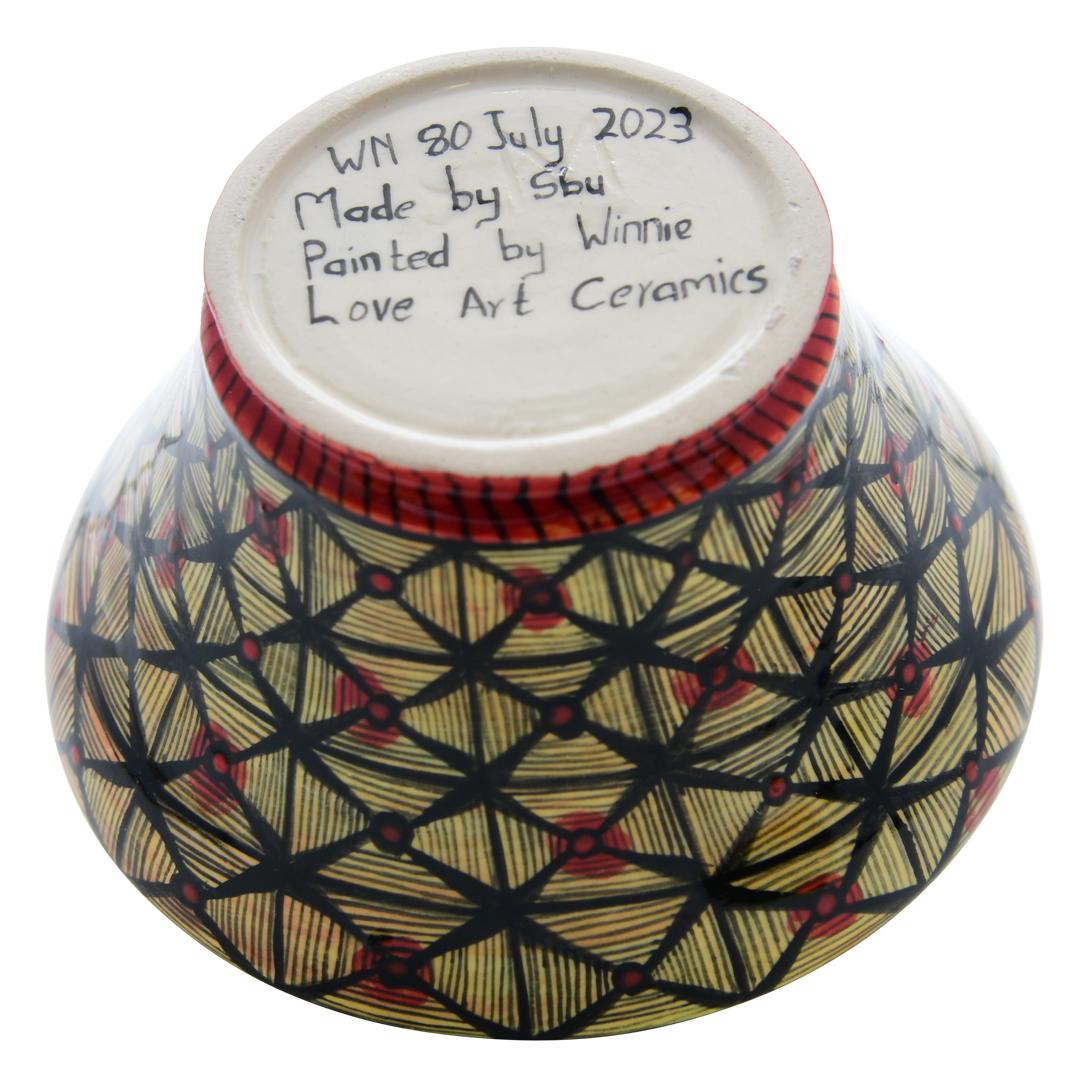 WN 80 July 2023
Made by Sbu
Painted by Winnie
Love Art Ceramics